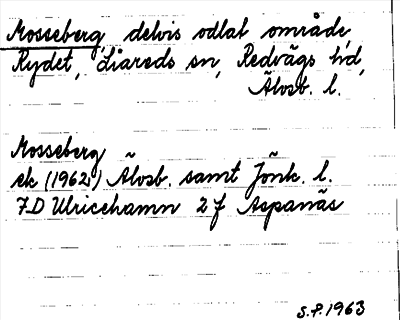 Mosseberg, delvis odlat område,
Rydet, Liareds sn, Redvägs hd,
Älvsb. l.
Mosseberg
ek (1962) Älvsb. samt Jönk. l.
7D Ulricehamn 2 f Aspanäs
S.P. 1963